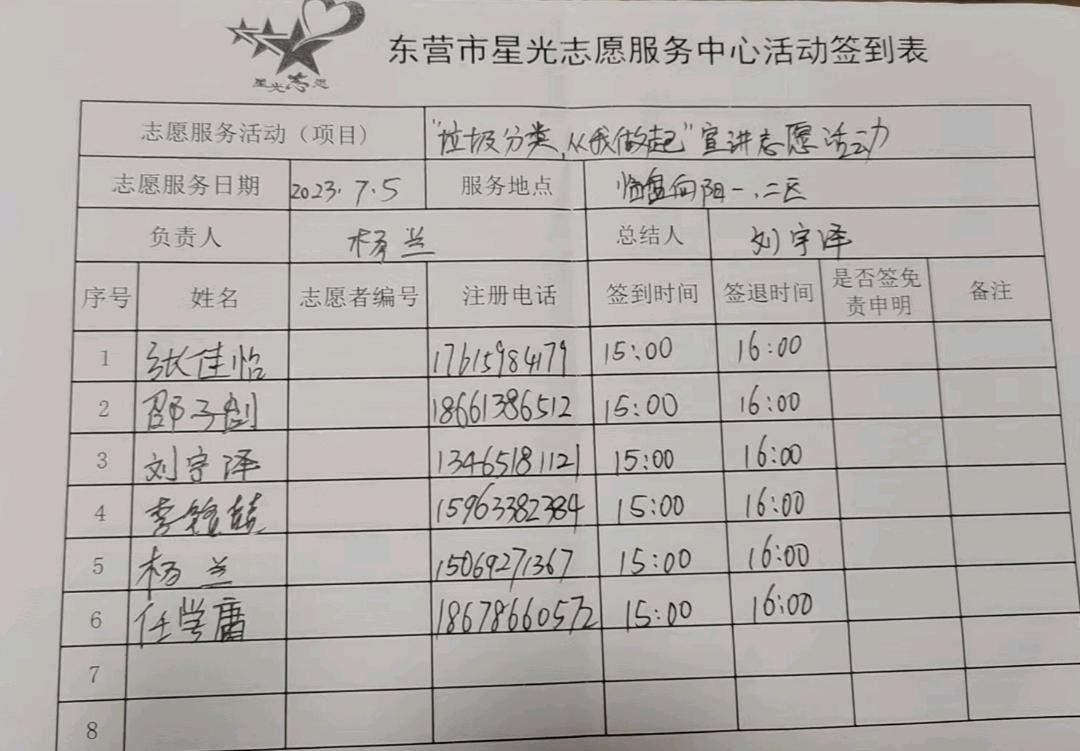 星光志愿
东营市星光志愿服务中心活动签到表
志愿服务活动（项目） "垃圾分类,从我做起"宣讲志愿活动
志愿服务日期 2023.7.5 服务地点 临盘向阳一.二区
负责人 杨兰 总结人 刘宇泽
序号 姓名 志愿者编号 注册电话 签到时间 签退时间 是否签免责申明 备注
1 张佳怡 17615984179 15:00 16:00
2 邵子 18661386512 15:00 16:00
3 刘宇泽 13465181121 15:00 16:00
4 李 15963382384 15:00 16:00
5 杨兰 15069271367 15:00 16:00
6 任学庸 18678660572 15:00 16:00
7
8